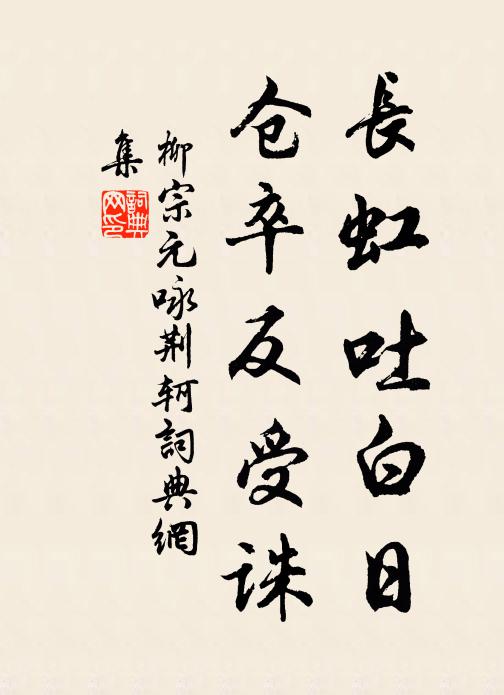 長虹吐白日
仓卒反受誅
柳宗元咏荆轲詞典網
集
詞典
网印